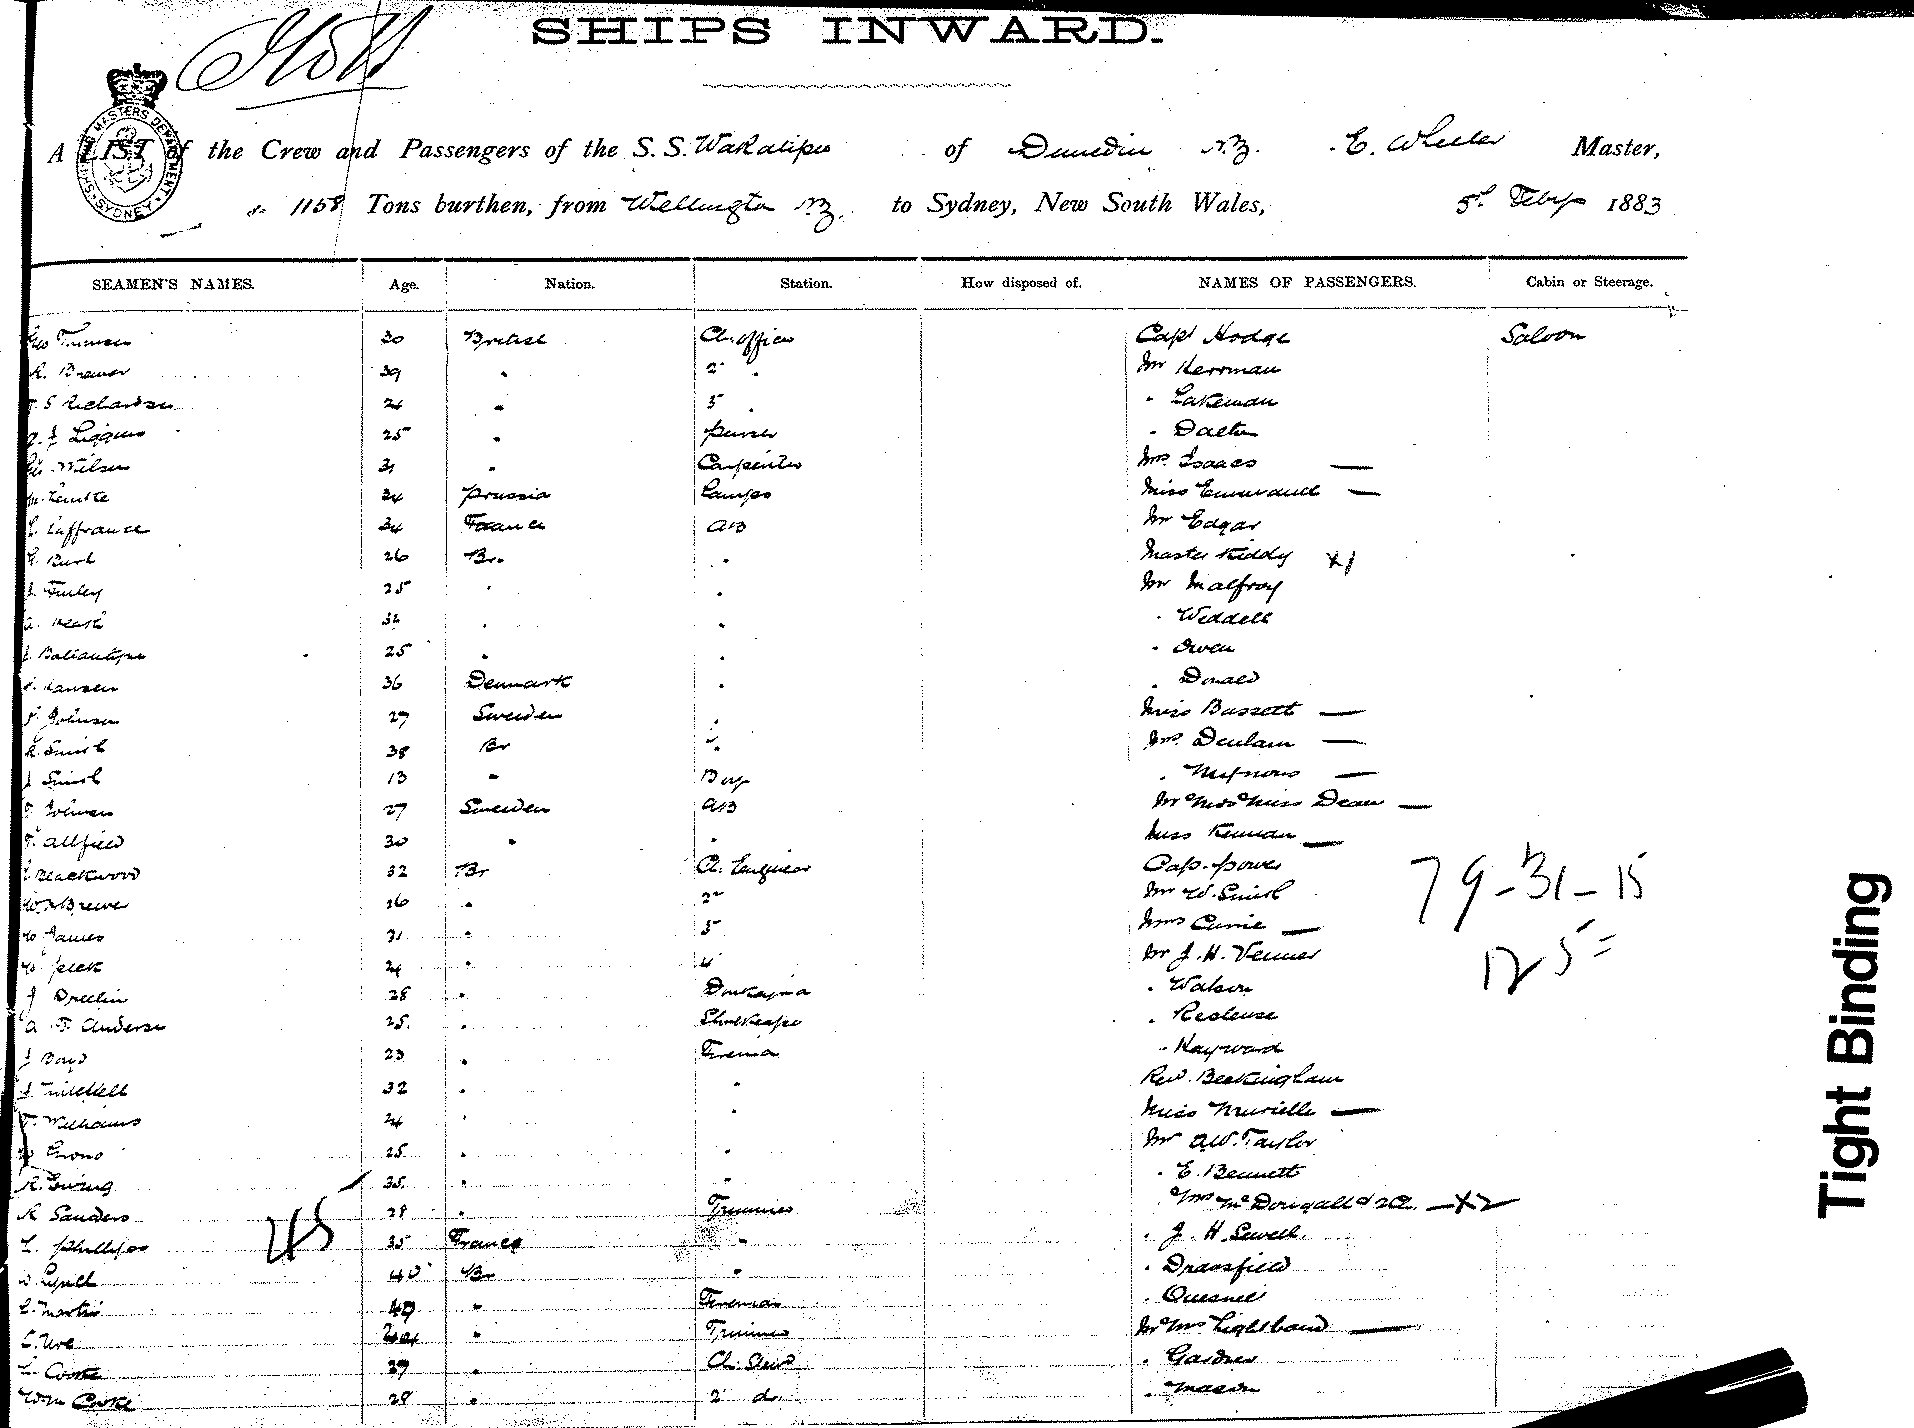 Holt
SHIPS INWARD.
SHIPPING MASTERS DEPARTMENT SYDNEY
A LIST of the Crew and Passengers of the S.S. Wakatipu of Dunedin N.Z. E. Wheeler Master,
1158 Tons burthen, from Wellington N.Z. to Sydney, New South Wales, 5th Feby 1883
SEAMEN'S NAMES. Age. Nation. Station. How disposed of. NAMES OF PASSENGERS. Cabin or Steerage.
30 British Ch. Officer Capt Hodge Saloon
Brewer 39 " 2 " Mr Herrman
S Richardson 24 " 3 " " Lakeman
Liggins 25 " Purser " Dalton
Geo Wilson 31 " Carpenter Mrs Isaacs —
34 Prussia Lamps Miss Emmanuel —
Laffrance 34 France AB Mr Edgar
26 Br. " Master Kiddy x1
J. Finley 25 " " Mr Malfroy
32 " " " Weddell
J. Ballantyne 25 " " " Owen
Hansen 36 Denmark " " Donald
Johnson 27 Sweden " Miss Bassett —
Smith 38 Br " Mrs Denham —
J Smith 13 " Boy " —
27 Sweden AB Mr Mrs Miss Dean —
Allfield 30 " " Miss Keenan —
Blackwood 32 Br Ch. Engineer Capt. Power
Brewer 26 " 2nd Mr W. Smith
W James 31 " 3 Mrs Currie —
W. Peek 24 " 4 Mr J. H. Venner
79-31-15
J 28 " Donkeyman " Watson
125=
A. F. Anderson 25 " Storekeeper "
J Boyd 23 " Fireman " Hayward
J Mitchell 32 " " Rev. Beckingham
T. Williams 24 " " Miss Murielle —
25 " " Mr A.W. Taylor
R. Ewing 35 " " " E. Bennett
R Sanders 28 " Trimmer " Mrs McDougall & 2 Ch. —x2
L. Phillips 45 35 France " " J. H. Sewell
Lynell 40 Br " " Dransfield
C. Martin 49 " Fireman " Quesnel
C. Ure " Trimmer Mr Mrs Lightband —
L. Cooke 29 " Ch. Stewd " Gardner
Wm Cooke 28 " 2 do " Mason
Tight Binding